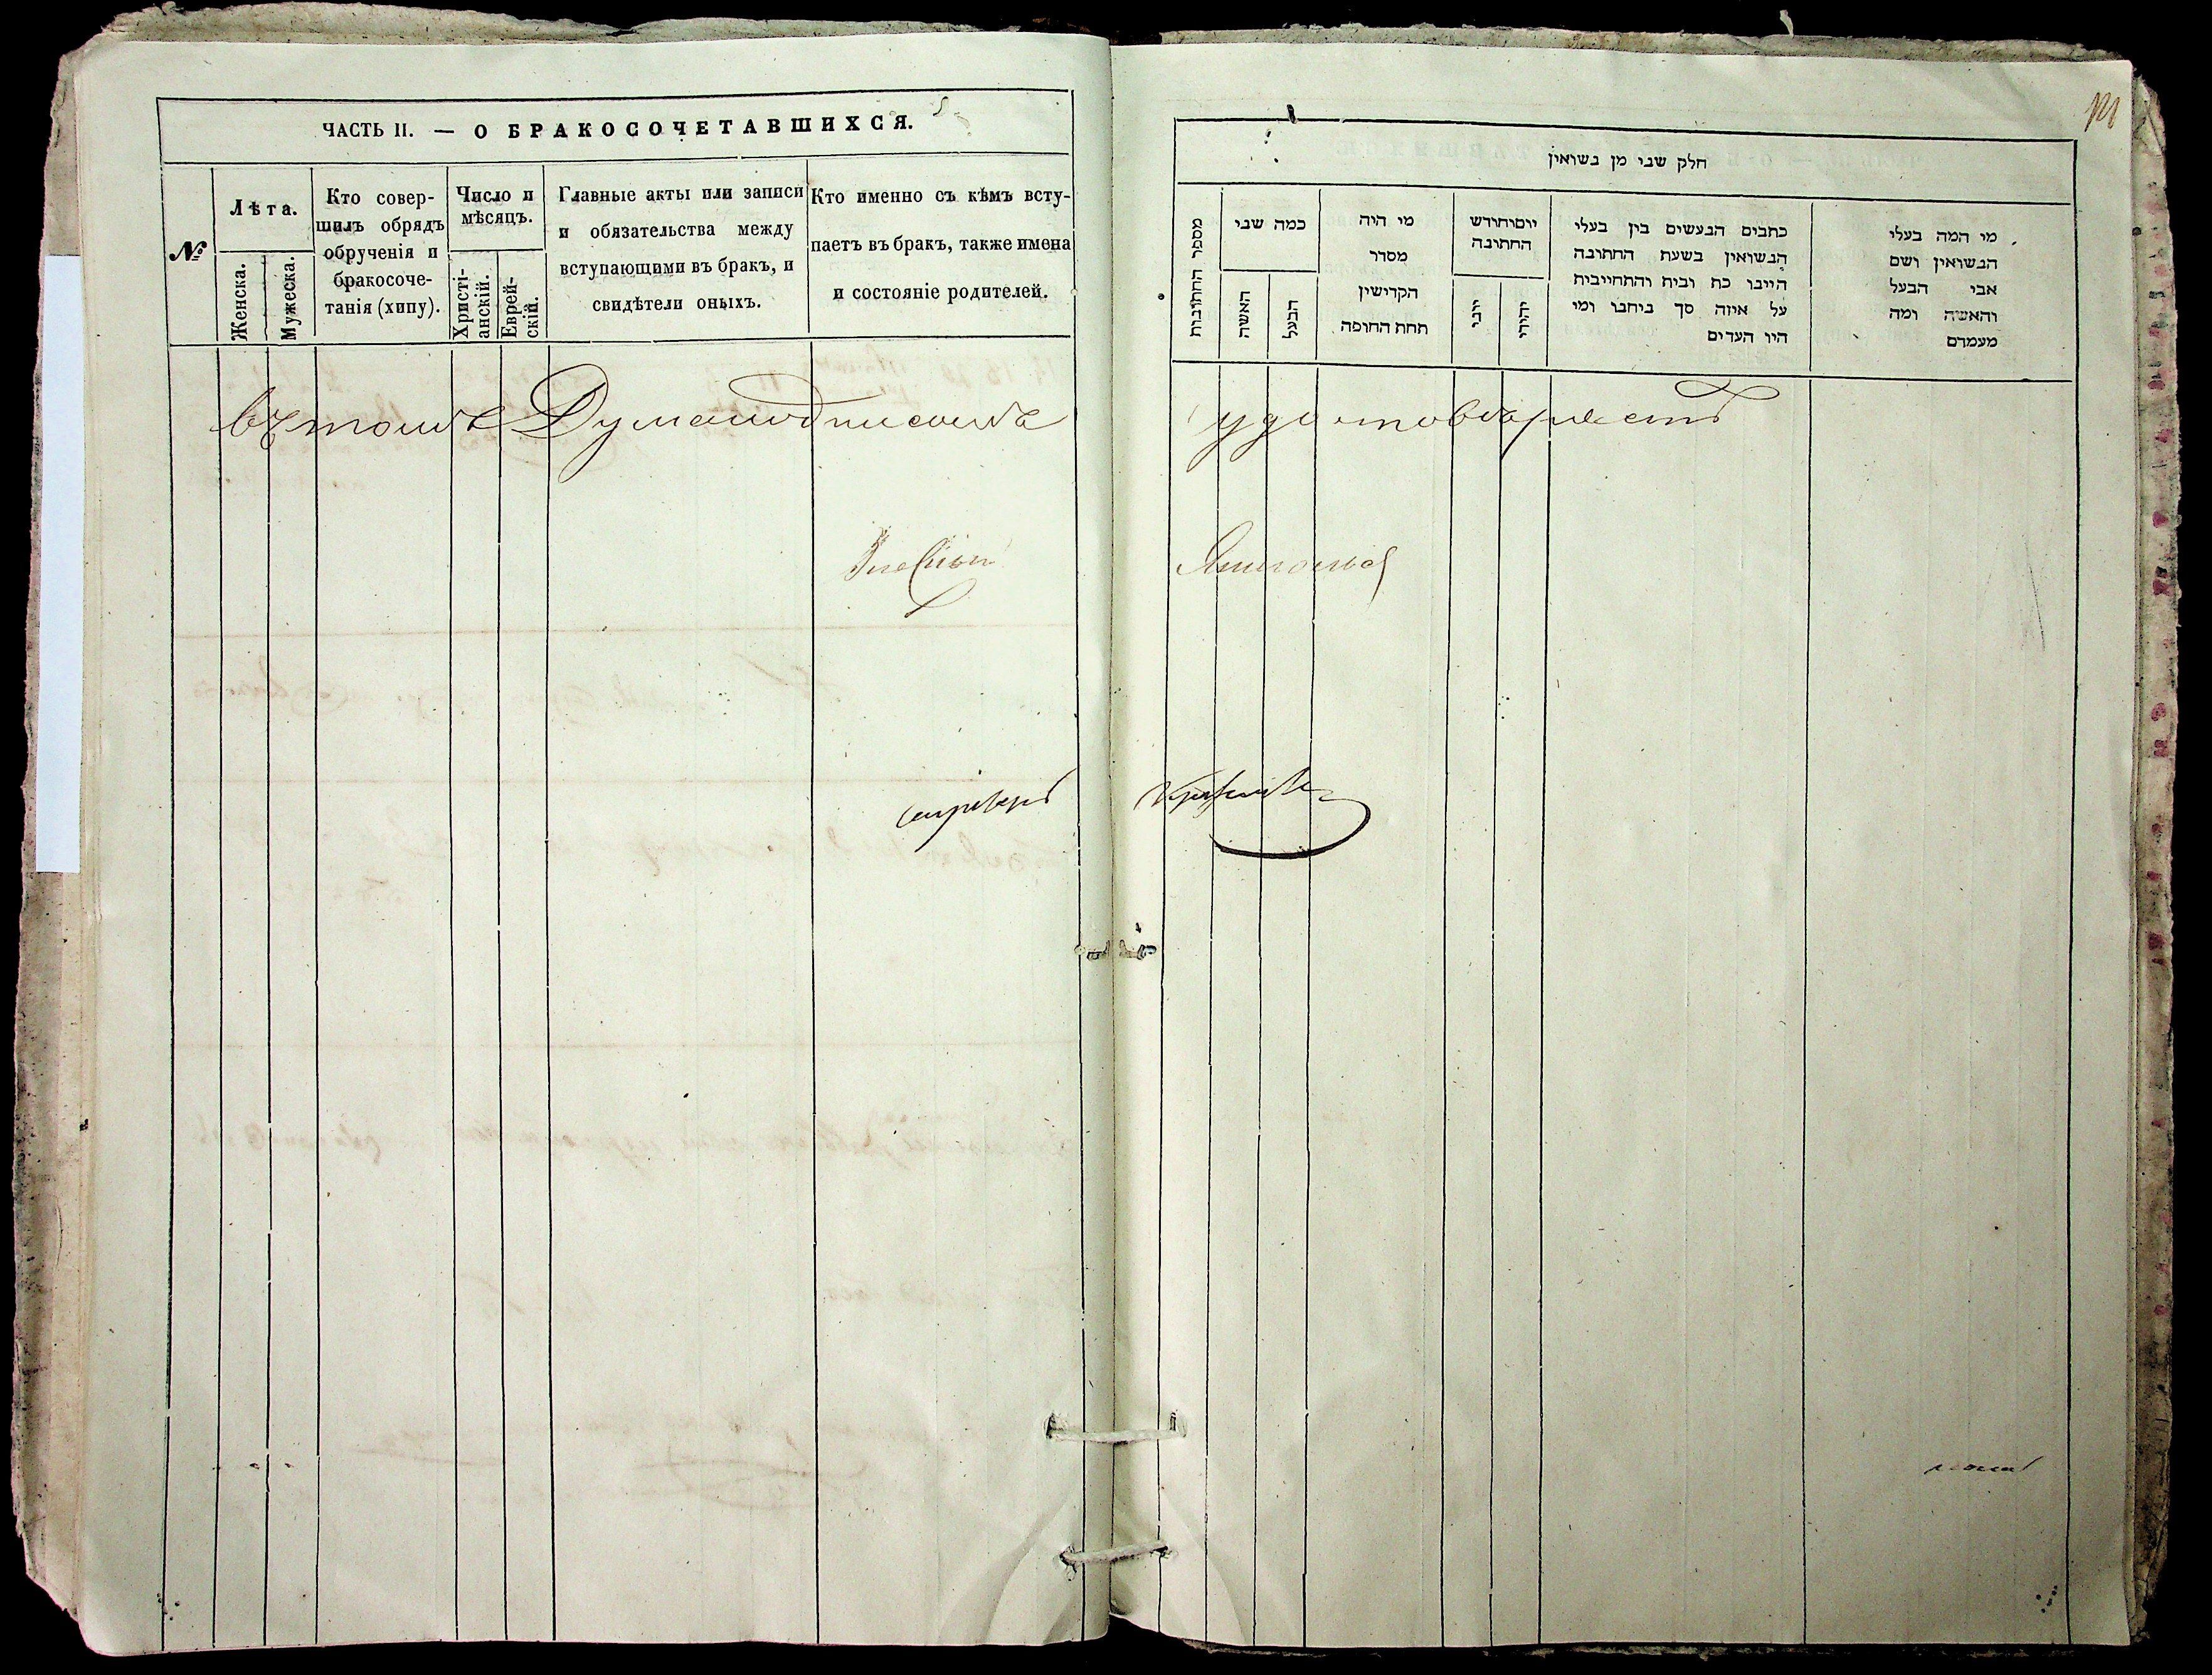 ЧАСТЬ II. — О БРАКОСОЧЕТАВШИХСЯ.
№
Лѣта.
Женска.
Мужеска.
Кто совер-
шилъ обрядъ
обрученія и
бракосоче-
танія (хипу).
Число и
мѣсяцъ.
Христі-
анскій.
Еврей-
скій.
Главные акты или записи
и обязательства между
вступающими въ бракъ, и
свидѣтели оныхъ.
Кто именно съ кѣмъ всту-
паетъ въ бракъ, также имена
и состояніе родителей.
חלק שני מן נשואין
מספר החתונות
כמה שני
האשה
הבעל
מי היה
מסדר
הקדישין
תחת החופה
יוםוחודש
החתונה
יוני
יהודי
כתבים הנעשים בין בעלי
הנשואין בשעת החתונה
הייבו כח ובית והתחייבית
על איזה סך ניתנו ומי
היו העדים
מי המה בעלי
הנשואין ושם
אבי הבעל
והאשה ומה
מעמדם
въ томъ Дума подписомъ удостовѣряетъ